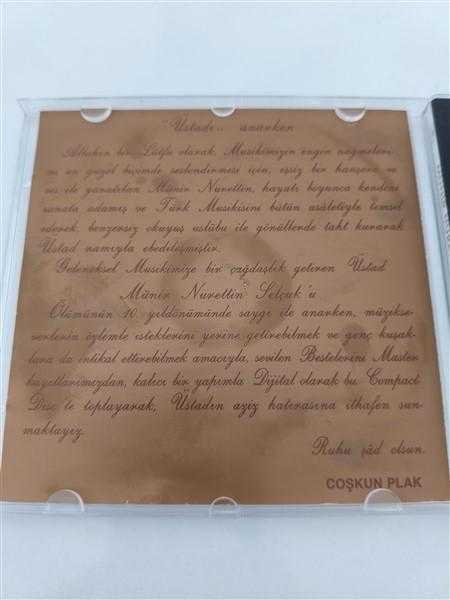 "Üstadı.. anarken
Allahın bir Lütfu olarak, Musikimizin engin nağmeleri
ni en güzel biçimde seslendirmesi için, eşsiz bir hançere ve
ses ile yaratılan Münir Nurettin, hayatı boyunca kendini
sanata adamış ve Türk Musikisini bütün asâletiyle temsil
ederek, benzersiz okuyuş uslûbu ile gönüllerde taht kurarak
Üstad namıyla ebedileşmiştir.
Geleneksel Musikimize bir çağdaşlık getiren Üstad
Münir Nurettin Selçuk'u
Ölümünün 10. yıldönümünde saygı ile anarken, müzikse-
verlerin özlemle isteklerini yerine getirebilmek ve genç kuşak-
lara da intikal ettirebilmek amacıyla, sevilen Bestelerini Master
kayıtlarımızdan, kalıcı bir yapımla Dijital olarak bu Compact
Disc'te toplayarak, Üstadın aziz hatırasına ithafen sun-
maktayız.
Ruhu şâd olsun.
COŞKUN PLAK